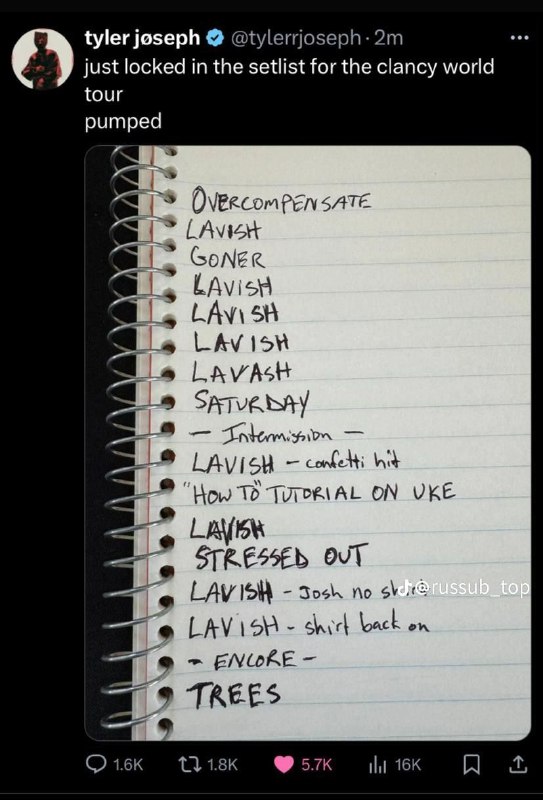 tyler jøseph @tylerrjoseph · 2m
just locked in the setlist for the clancy world
tour
pumped
OVERCOMPENSATE
LAVISH
GONER
LAVISH
LAVISH
LAVISH
LAVASH
SATURDAY
— Intermission —
LAVISH - confetti hit
"HOW TO" TUTORIAL ON UKE
LAVISH
STRESSED OUT
LAVISH - Josh no shirt
@russub_top
LAVISH - shirt back on
- ENCORE -
TREES
1.6K 1.8K 5.7K 16K